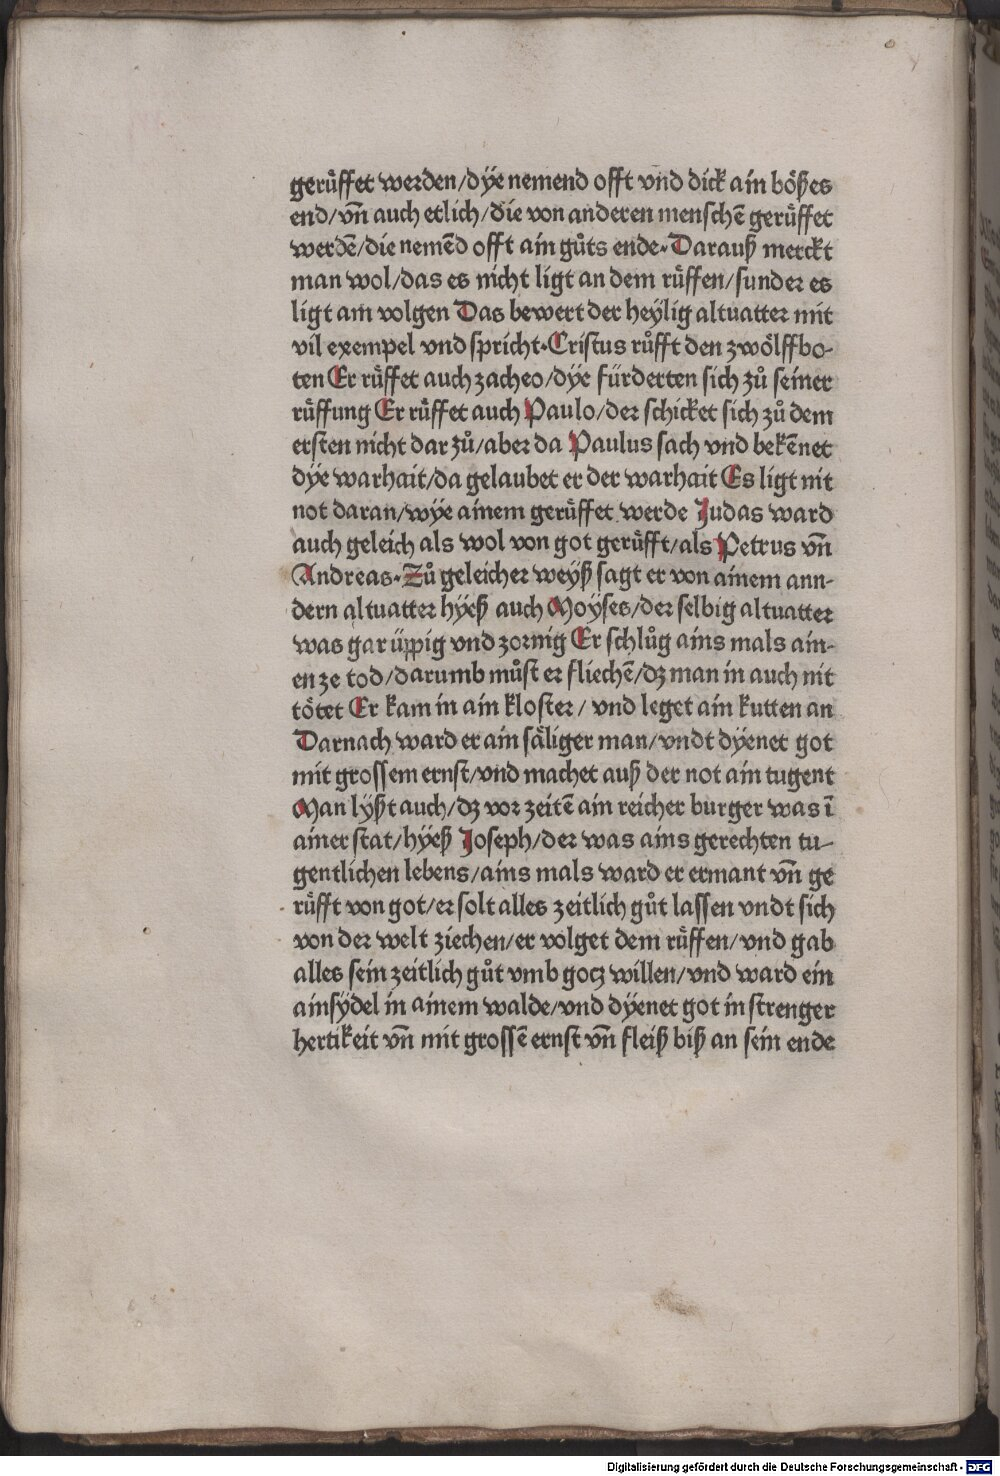 gerüffet werden/dÿe nemend offt vnd dick ain bößes
end/vñ auch etlich/die von anderen menschẽ gerüffet
werdẽ/die nemẽd offt ain gůts ende. Darauß merckt
man wol/das es nicht ligt an dem rüffen/sunder es
ligt am volgen Das bewert der heÿlig altuatter mit
vil exempel vnd spricht. Cristus růfft den zwölffbo-
ten Er rüffet auch zacheo/dÿe fürderten sich zů seiner
rüffung Er rüffet auch Paulo/der schicket sich zů dem
ersten nicht dar zů/aber da Paulus sach vnd bekẽnet
dÿe warhait/da gelaubet er der warhait Es ligt nit
not daran/wÿe ainem gerüffet werde Judas ward
auch geleich als wol von got gerüfft/als Petrus vñ
Andreas. Zů geleicher weÿß sagt er von ainem ann-
dern altuatter hÿeß auch Moÿses/der selbig altuatter
was gar üppig vnd zornig Er schlůg ains mals ain-
en ze tod/darumb můst er fliechẽ/dz man in auch nit
tötet Er kam in ain kloster/ vnd leget ain kutten an
Darnach ward er ain säliger man/vndt dÿenet got
mit grossem ernst/vnd machet auß der not ain tugent
Man lÿßt auch/dz vor zeitẽ ain reicher burger was ĩ
ainer stat/hÿeß Joseph/der was ains gerechten tu-
gentlichen lebens/ains mals ward er ermant vñ ge
rüfft von got/er solt alles zeitlich gůt lassen vndt sich
von der welt ziechen/er volget dem rüffen/vnd gab
alles sein zeitlich gůt vmb gotz willen/vnd ward ein
ainsÿdel in ainem walde/vnd dÿenet got in strenger
hertikeit vñ mit grossẽ ernst vñ fleiß biß an sein ende
Digitalisierung gefördert durch die Deutsche Forschungsgemeinschaft - DFG